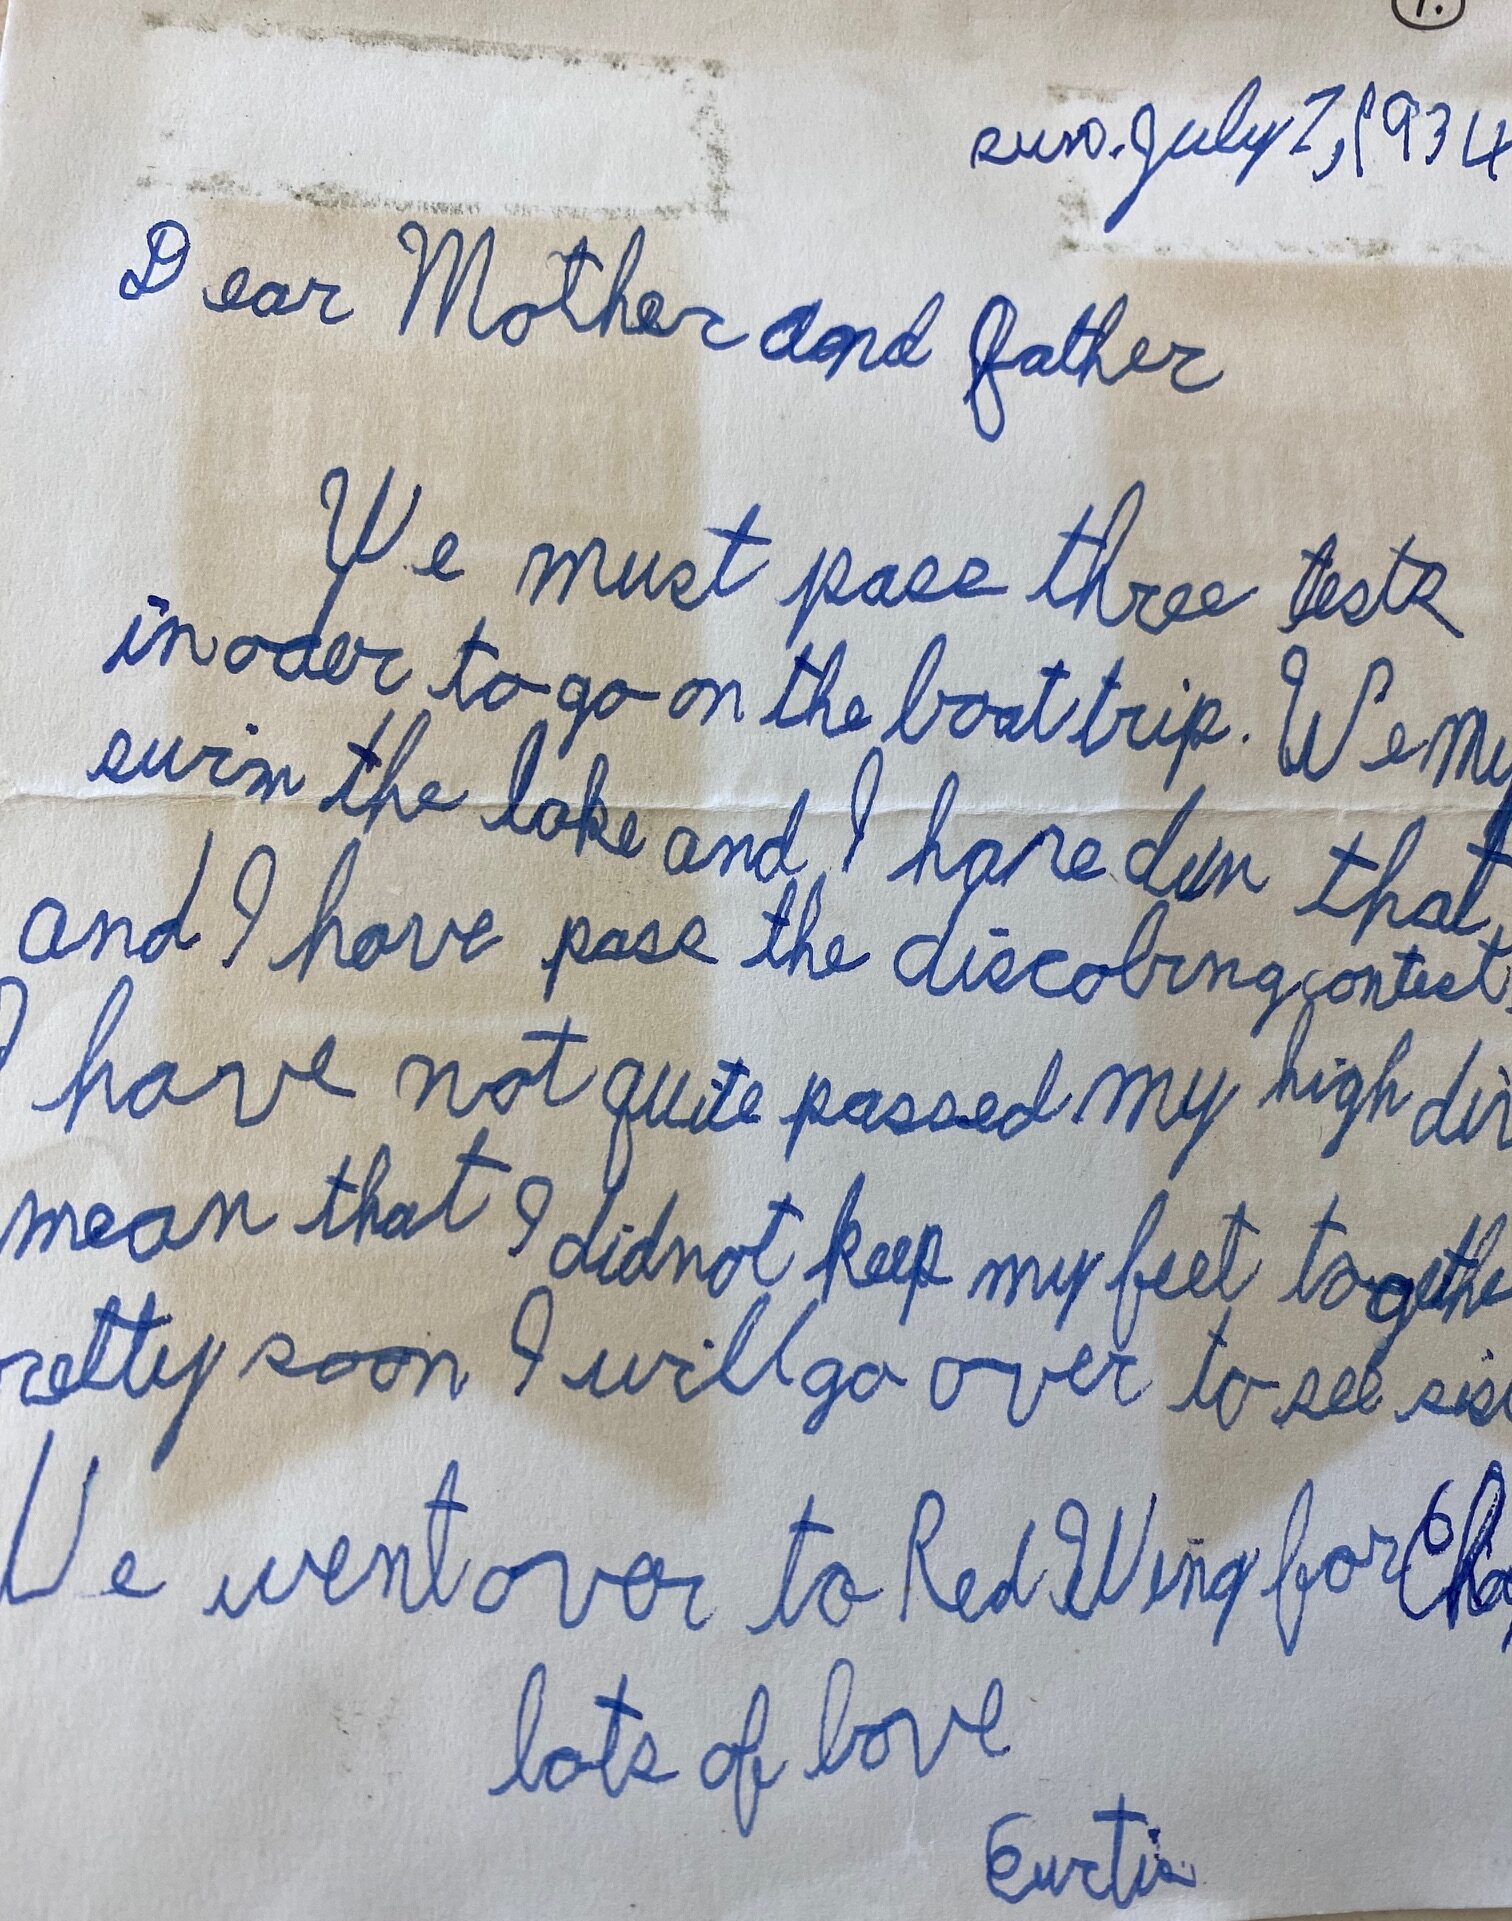 1.
sun. July 7, 1934
Dear Mother and father
We must pass three tests
in oder to go on the boat trip. We mu
swim the lake and I have dun that,
and I have pass the discobing contest.
I have not quite passed my high div
mean that I did not keep my feet togethe
retty soon I will go over to see sis
We went over to Red Wing for Chap
lots of love
Curtis